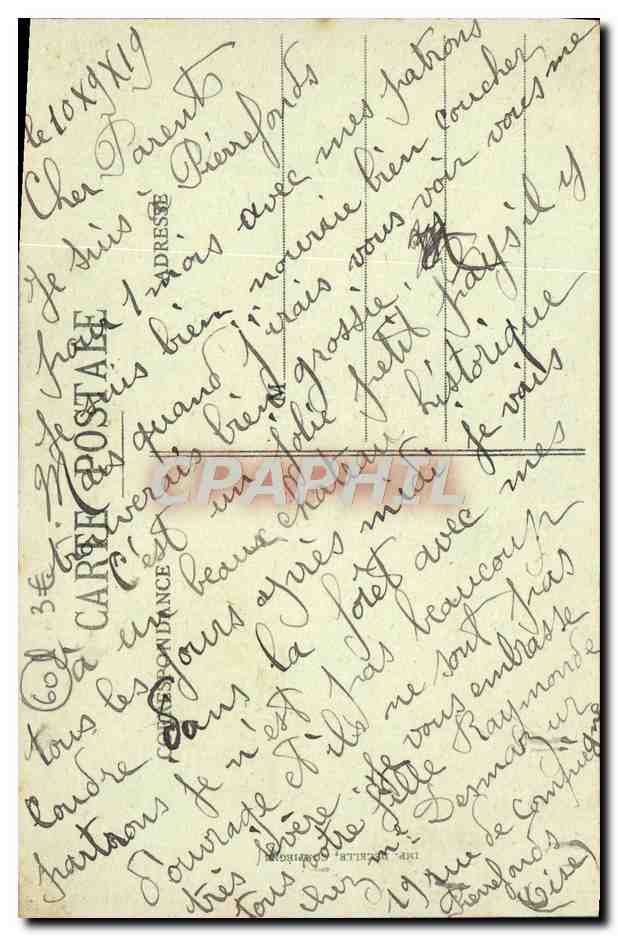 le 10 X 9 X 19
Cher Parents
Je suis à Pierrefonds
pour 1 mois avec mes patrons
Je suis bien nourrie bien coucher
Mais quand j'irais vous voir vous me
trouverais bien grossie,
C'est un jolie petit pays il y
a un beau chateau historique
tous les jours après midi je vais
coudre dans la forêt avec mes
patrons je n'est pas beaucoup
d'ouvrage et ils ne sont pas
très sévère. Je vous embrasse
tous votre fille Raymonde
chez mr Desmarez
19 rue de Compiègne
Pierrefonds
(Oise)
CARTE POSTALE
CORRESPONDANCE
ADRESSE
M
IMP. DECELLE, COMPIEGNE
CPAPHIL
60
3€